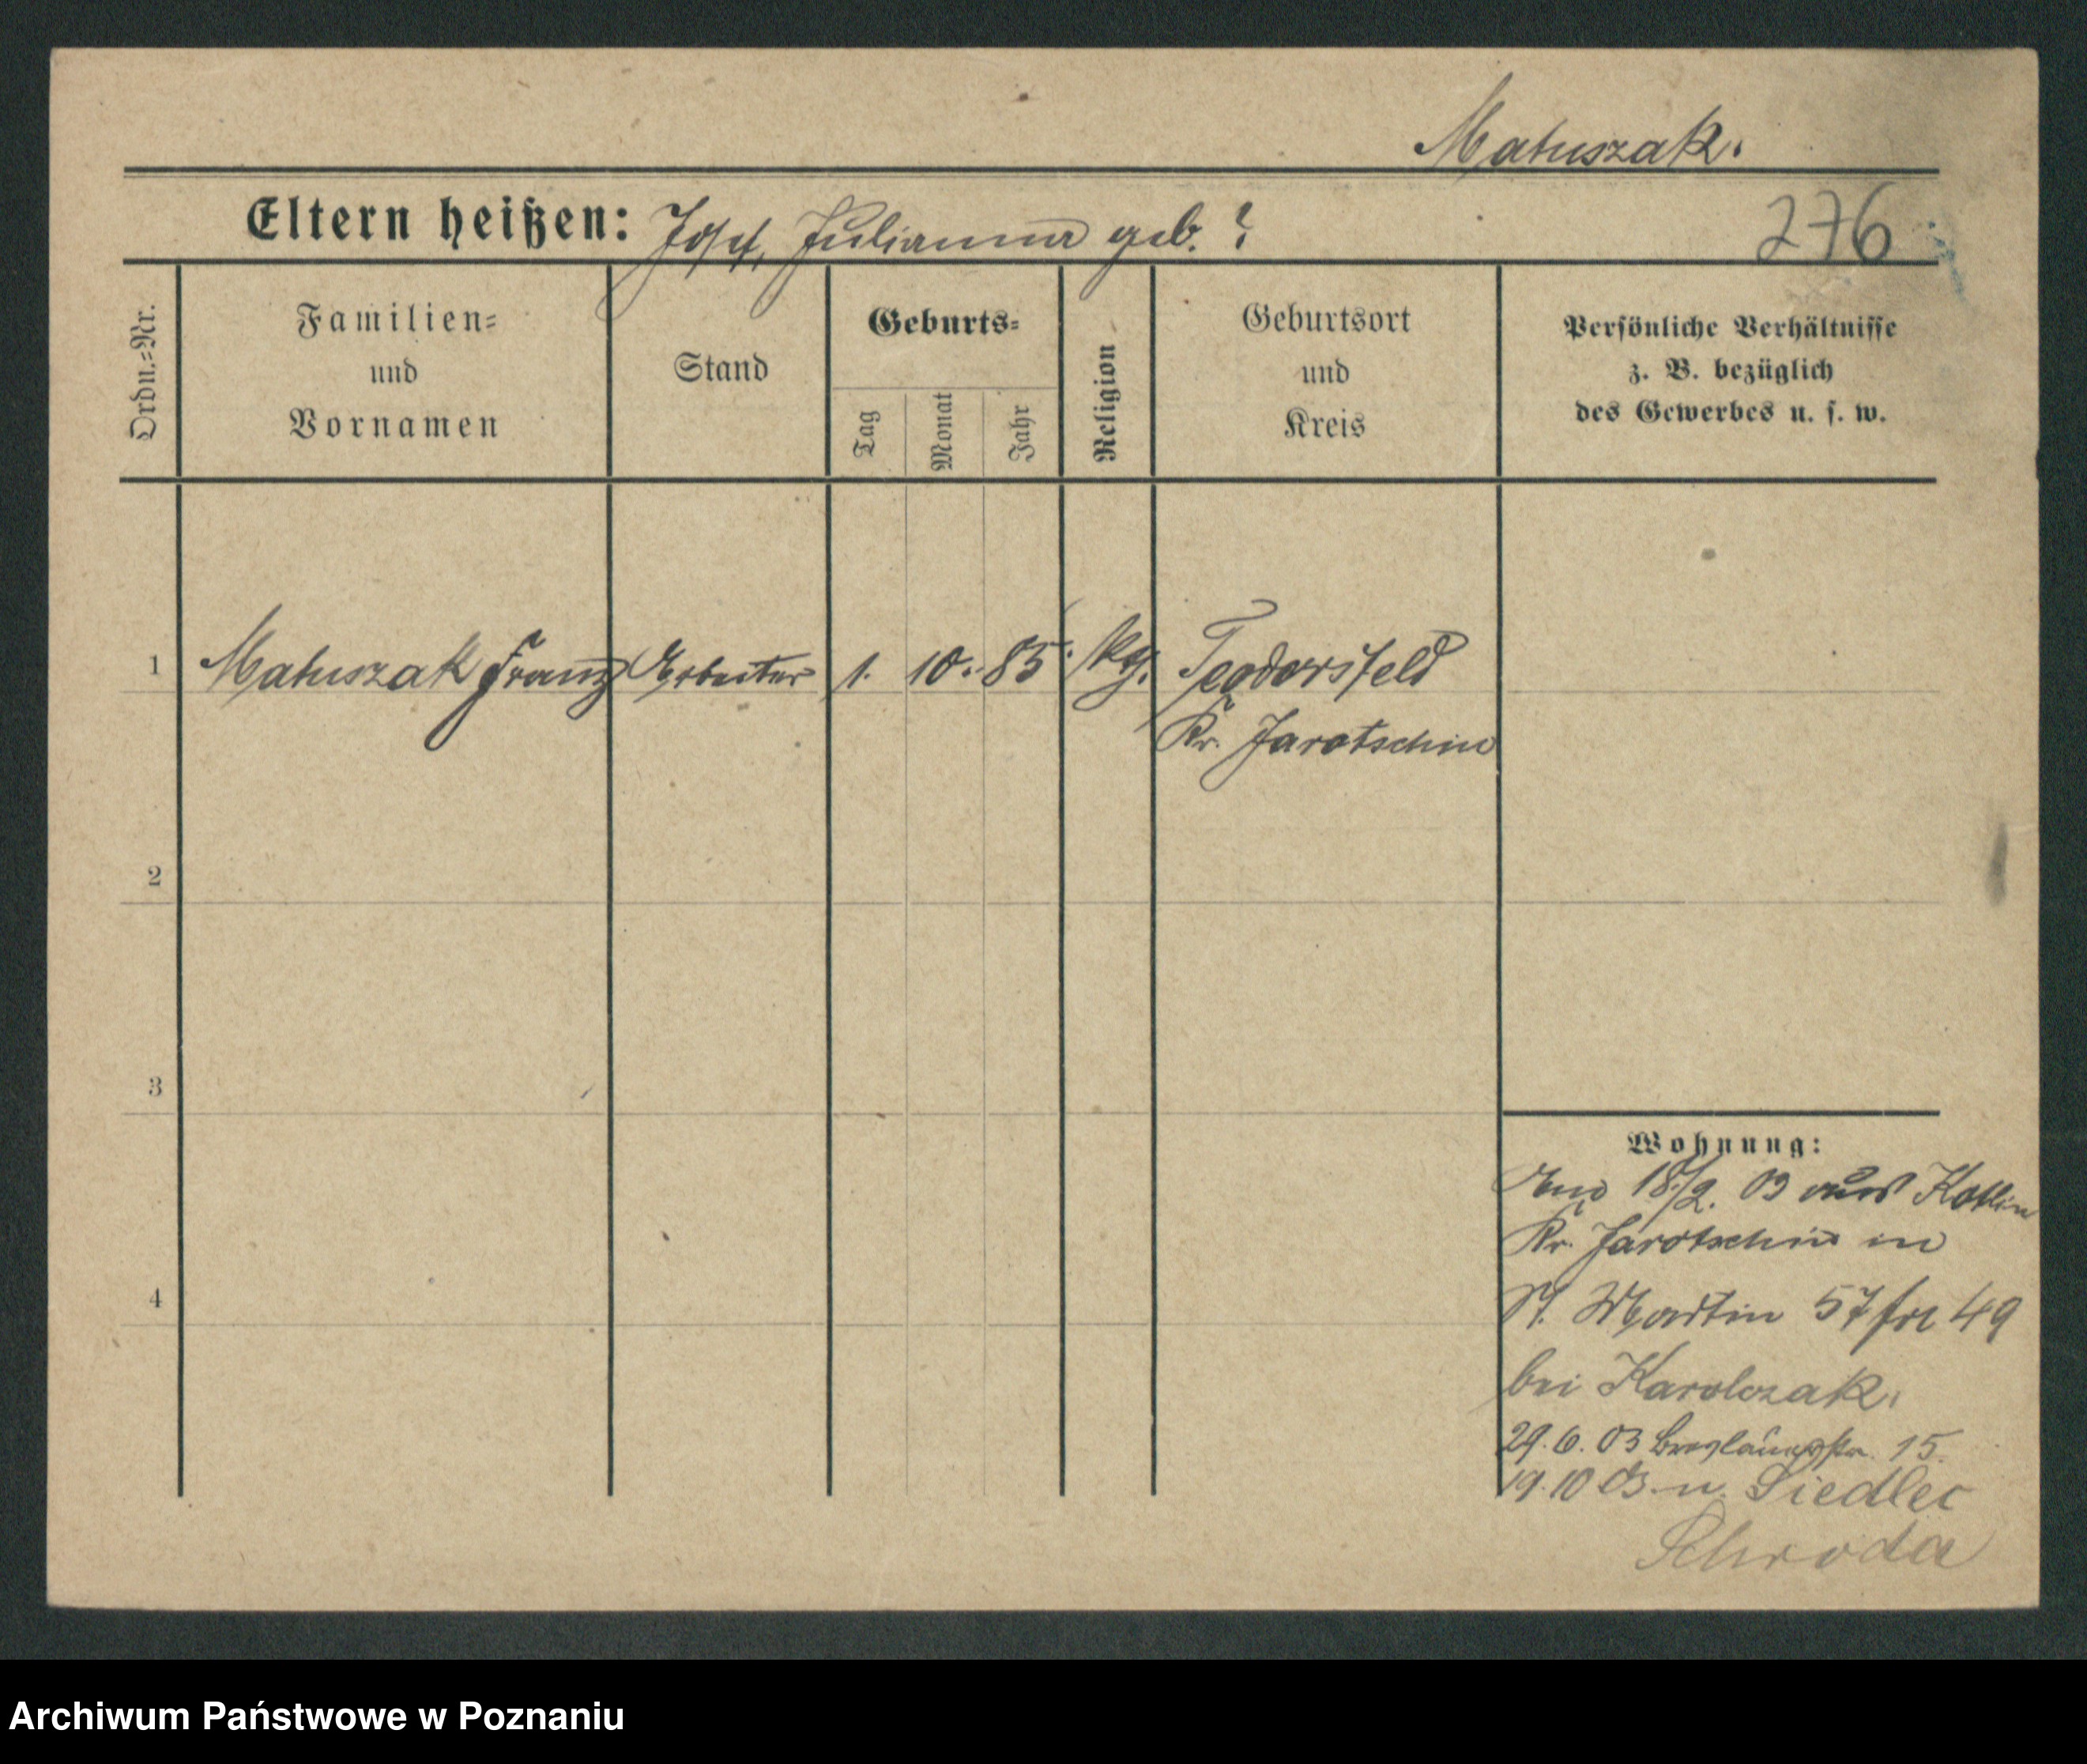 Matuszak.
Eltern heißen: Josef, Julianna geb. ?
276
Ordn.=Nr.
Familien=
und
Vornamen
Stand
Geburts=
Tag
Monat
Jahr
Religion
Geburtsort
und
Kreis
Persönliche Verhältnisse
z. B. bezüglich
des Gewerbes u. s. w.
1 Matuszak Franz Arbeiter 1. 10. 85. kg. Teodorsfeld
Kr. Jarotschin
2
3
4
Wohnung:
18/2. 03 aus Kotlin
Kr. Jarotschin in
St. Martin 57 49
bei Karolczak.
29.6.03 15.
19.10 03. n. Siedlec
Schroda
Archiwum Państwowe w Poznaniu